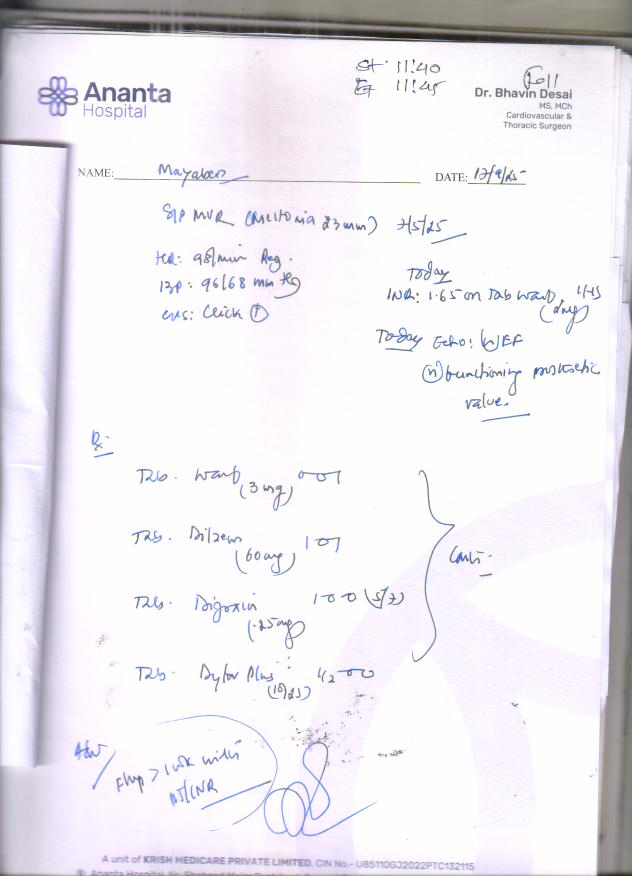 St. 11:40
Et 11:45
Ananta
Hospital
Foll
Dr. Bhavin Desai
MS, MCh
Cardiovascular &
Thoracic Surgeon
NAME: Mayaben
DATE: 12/9/25
S/P MVR ( 23mm) 7/5/25
HR: 98/min Reg.
BP: 96/68 mm Hg
CVS: Click ⊕
Today
INR: 1.65 on Tab Warf
Today Echo: (N) EF
(n) functioning prosthetic
valve.
Rx
Tab. Warf 0-0-1
(3 mg)
Tab. Dilzem 1-0-1
(60mg)
Tab. Digoxin 1-0-0 (5/7)
(.25mg)
Tab. Dytor Plus 1/2-0-0
(10/25)
Cont.
Adv
F/up > 1 wk with
PT/INR
A unit of KRISH MEDICARE PRIVATE LIMITED, CIN No.- U85110GJ2022PTC132115